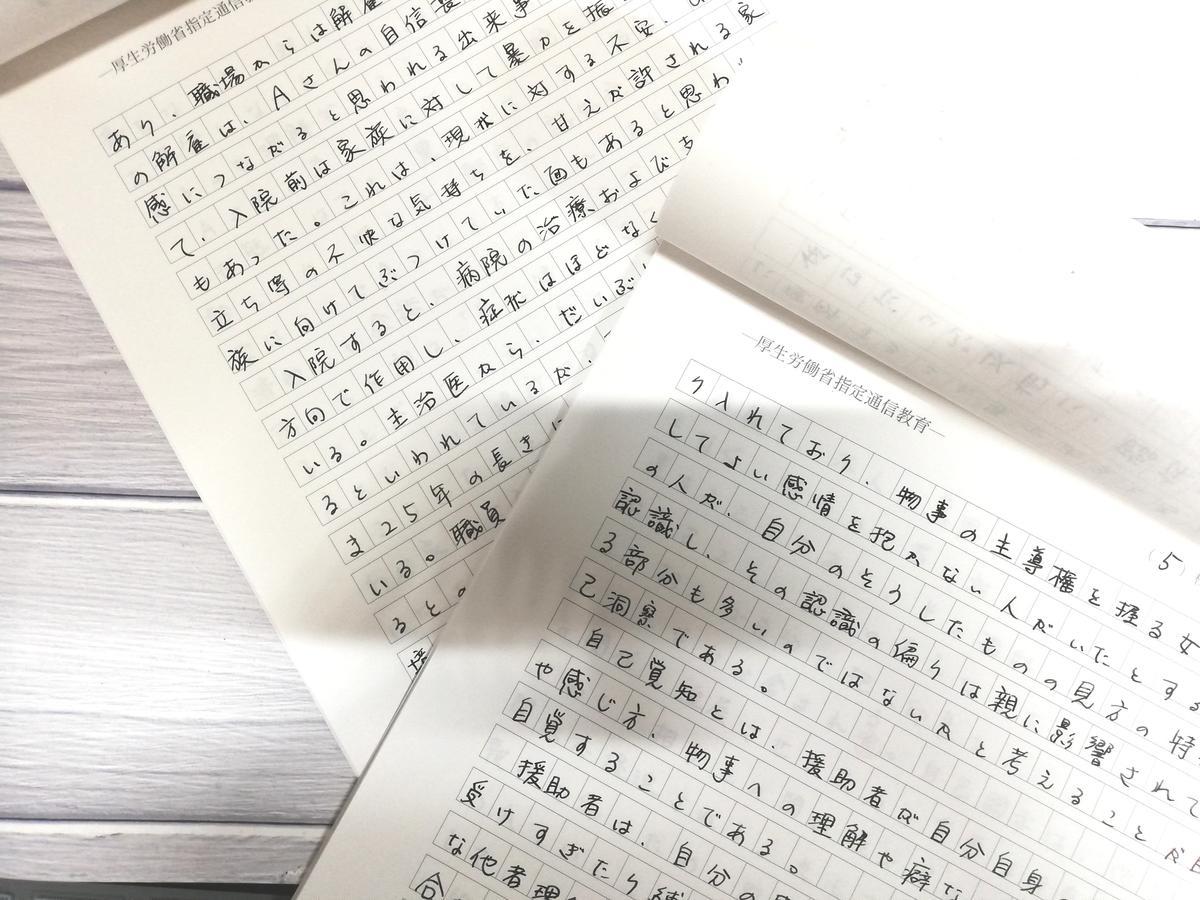 ―厚生労働省指定通信教
あり、職場からは解雇
の解雇は、Aさんの自信喪
感につながると思われる出来事
て、入院前は家族に対して暴力を振
もあった。これは、現状に対する不安、
立ち等の不快な気持ちを、甘えが許される家
族に向けてぶつけていた面もあると思わ
入院すると、病院の治療およびち
方向で作用し、症状はほどなく
いる。主治医から、だいぶ
るといわれているが、
ま25年の長きに
いる。職員
ると
―厚生労働省指定通信教育―
(5)
り入れており、物事の主導権を握る女
してよい感情を抱かない人がいたとする
の人が、自分のそうしたものの見方の特
認識し、その認識の偏りは親に影響されて
る部分も多いのではないかと考えることが自
己洞察である。
自己覚知とは、援助者が自分自身
や感じ方、物事への理解や癖な
自覚することである。
援助者は、自分の
受けすぎたり
な他者理
合